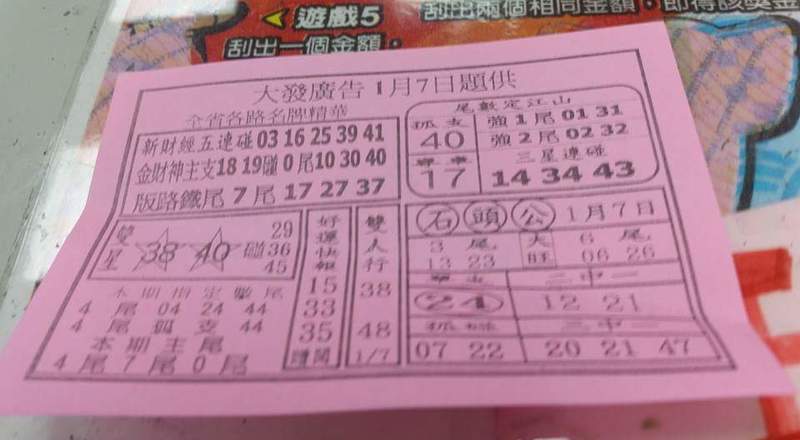 遊戲5
刮出兩個相同金額,即得該獎金
刮出一個金額,
大發廣告 1月7日題供
全省各路名牌精華
新財經五連碰 03 16 25 39 41
金財神主支18 19碰 0 尾10 30 40
版路鐵尾 7 尾 17 27 37
尾數定江山
孤支
40
強 1 尾 01 31
強 2 尾 02 32
三星連碰
17
14 34 43
雙星
38 40 碰
29
36
45
本期指定數尾
4 尾 04 24 44
4 尾 孤支 44
本期主尾
4 尾 7 尾 0 尾
好運快報
15
33
35
雙人行
38
48
1/7
石頭公 1月7日
3 尾
13 23
大旺
6 尾
06 26
二中一
24
12 21
二中一
07 22
20 21 47